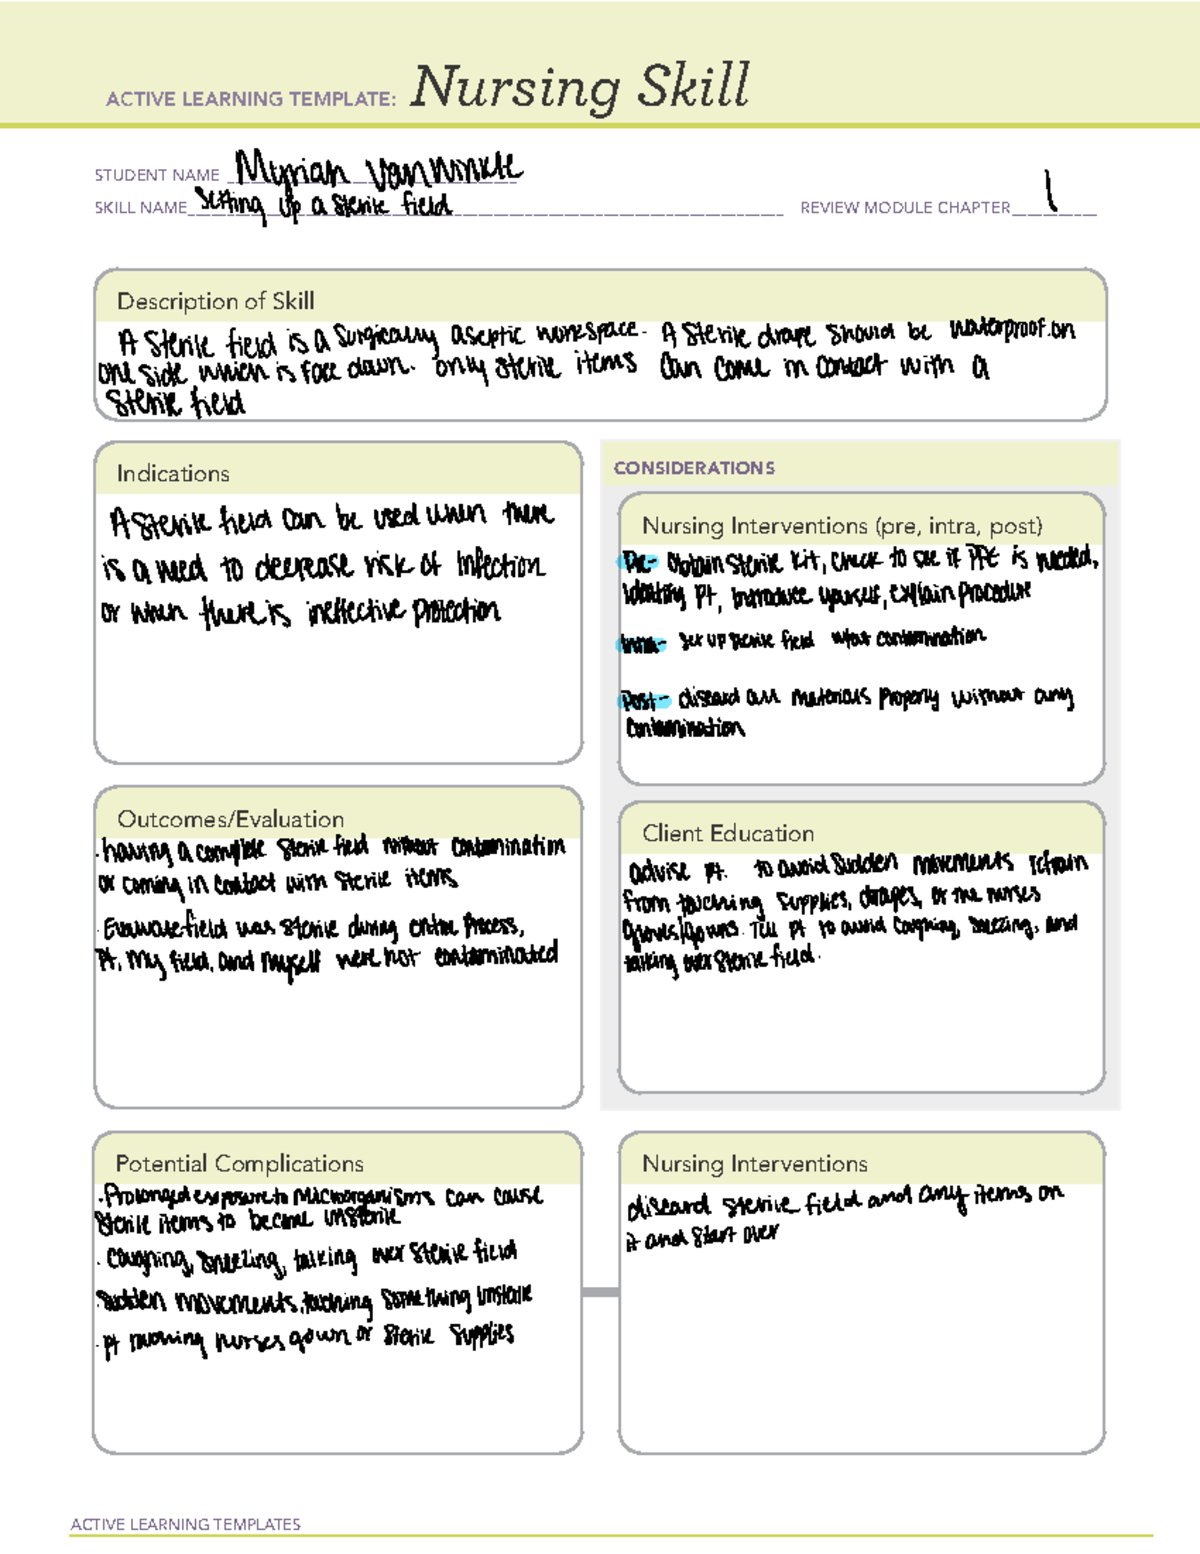 ACTIVE LEARNING TEMPLATE: Nursing Skill
STUDENT NAME Myriah VanWinkle
SKILL NAME Setting up a sterile field REVIEW MODULE CHAPTER 1
Description of Skill
A sterile field is a surgically aseptic workspace. A sterile drape should be waterproof on
one side which is face down. only sterile items can come in contact with a
sterile field
Indications
A sterile field can be used when there
is a need to decrease risk of infection
or when there is ineffective protection
CONSIDERATIONS
Nursing Interventions (pre, intra, post)
Pre- obtain sterile kit, check to see if PPE is needed,
identify pt, introduce yourself, explain procedure
Intra- set up sterile field w/out contamination
Post- discard all materials properly without any
contamination
Outcomes/Evaluation
· having a complete sterile field without contamination
or coming in contact with sterile items
· Evaluate field was sterile during entire process,
pt, my field, and myself were not contaminated
Client Education
advise pt. to avoid sudden movements refrain
from touching supplies, drapes, or the nurses
gloves/gowns. Tell pt to avoid coughing, sneezing, and
talking over sterile field.
Potential Complications
· Prolonged exposure to microorganisms can cause
sterile items to become unsterile
· coughing, sneezing, talking over sterile field
· sudden movements, touching something unsterile
· pt touching nurses gown or sterile supplies
Nursing Interventions
discard sterile field and any items on
it and start over
ACTIVE LEARNING TEMPLATES